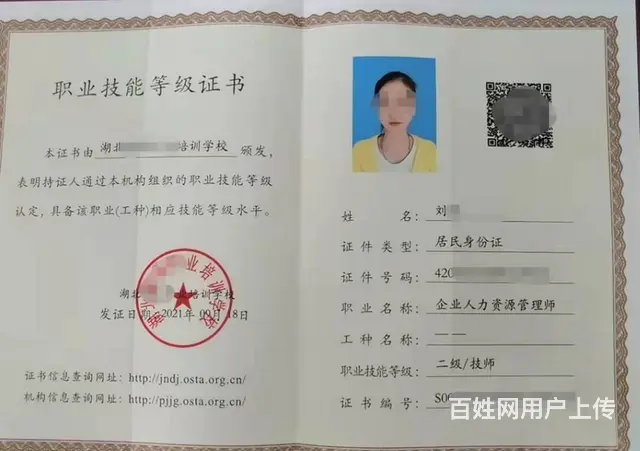 职业技能等级证书
本证书由 湖北 培训学校 颁发，
表明持证人通过本机构组织的职业技能等级
认定，具备该职业(工种)相应技能等级水平。
湖北 培训学校
发证日期：2021年 09月18日
业培训学校
证书信息查询网址：http://jndj.osta.org.cn/
机构信息查询网址：http://pjjg.osta.org.cn/
姓 名：刘
证件类型：居民身份证
证件号码：420
职业名称：企业人力资源管理师
工种名称：——
职业技能等级：二级/技师
证书编号：S00
百姓网用户上传